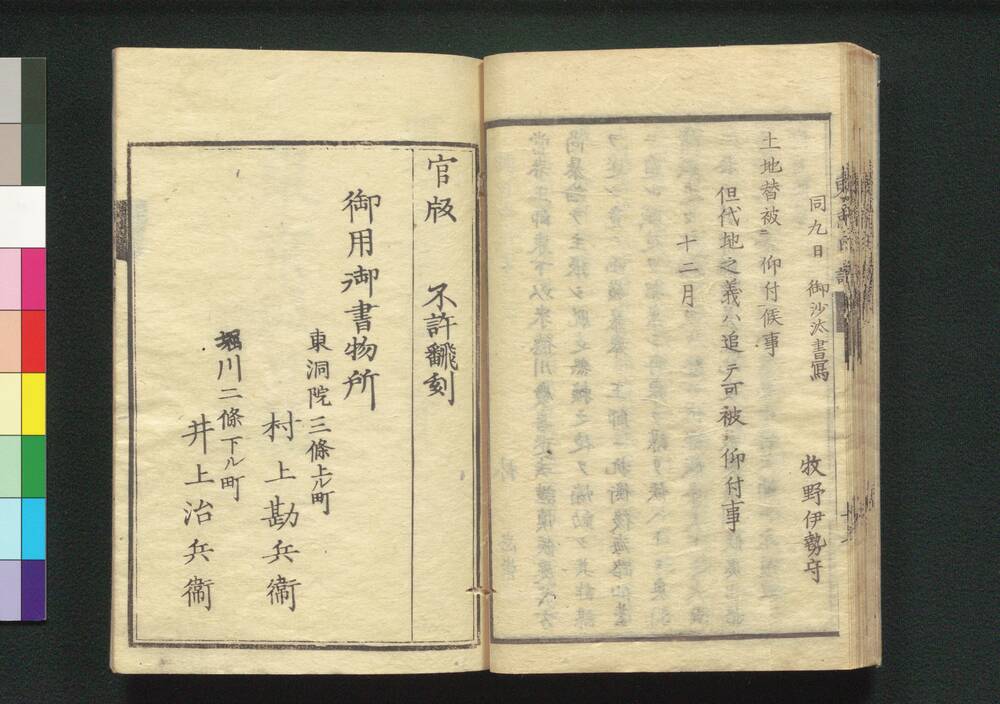 同九日 御沙汰書寫
牧野伊勢守
土地替被ニ仰付候事
但代地之義ハ追テ可被ニ仰付事
十二月
官版 不許飜刻
御用御書物所
東洞院三條上ル町
村上勘兵衞
堀川二條下ル町
井上治兵衞